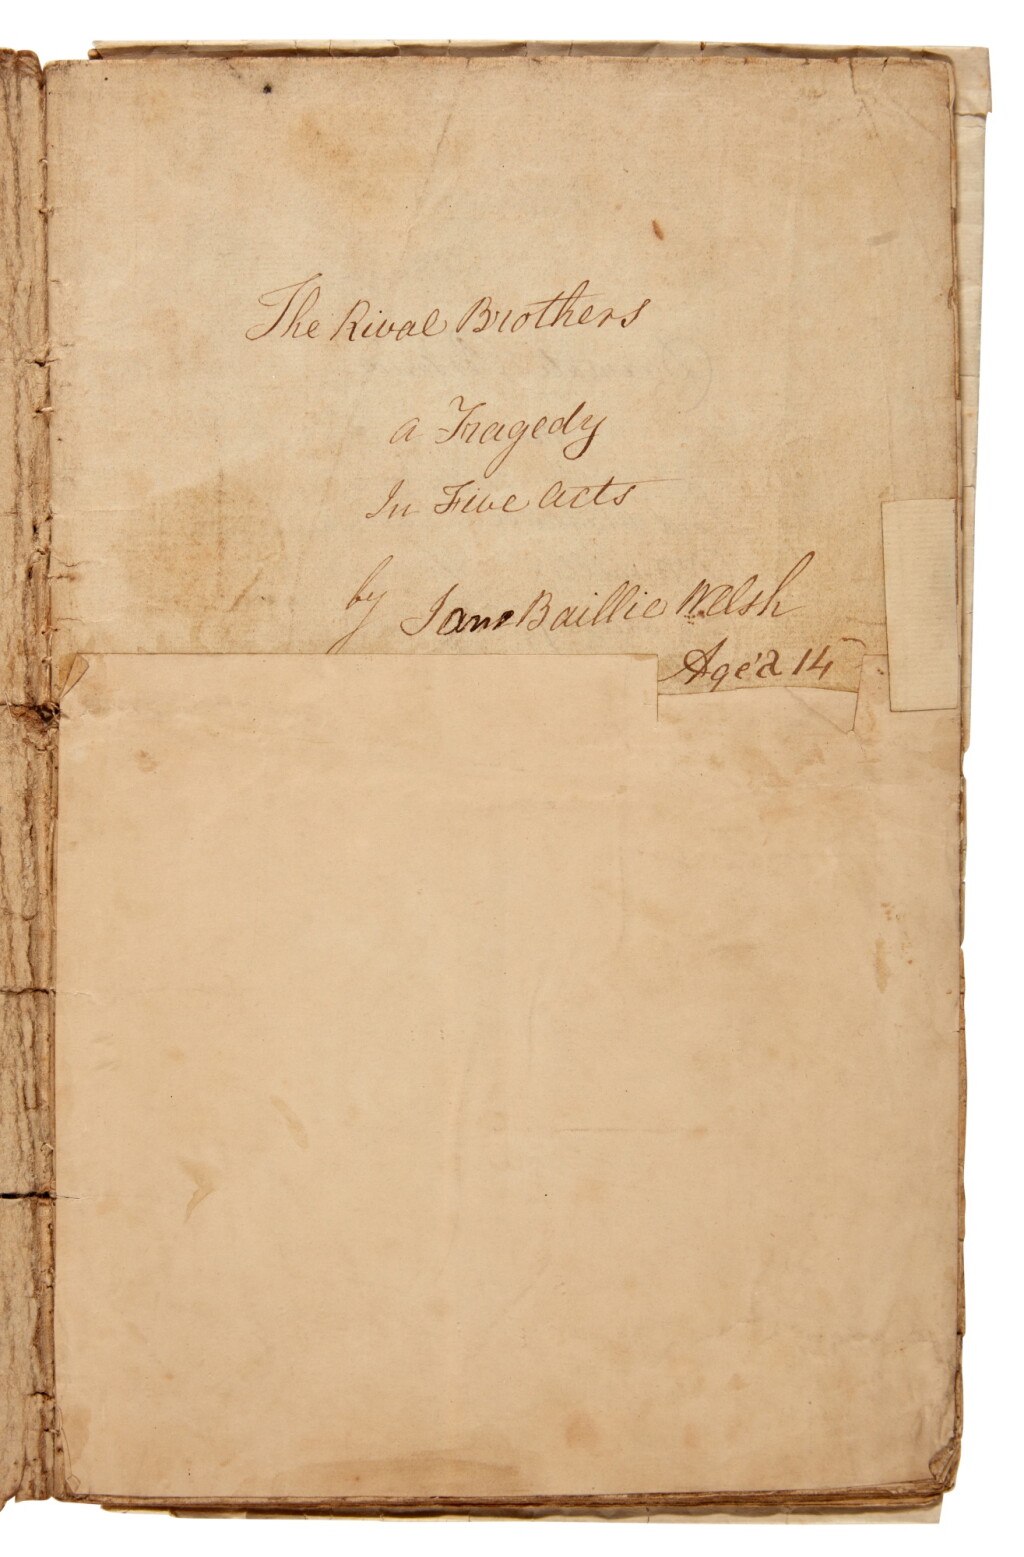 The Rival Brothers
a Tragedy
In Five Acts
by Jane Baillie Welsh
Age'd 14